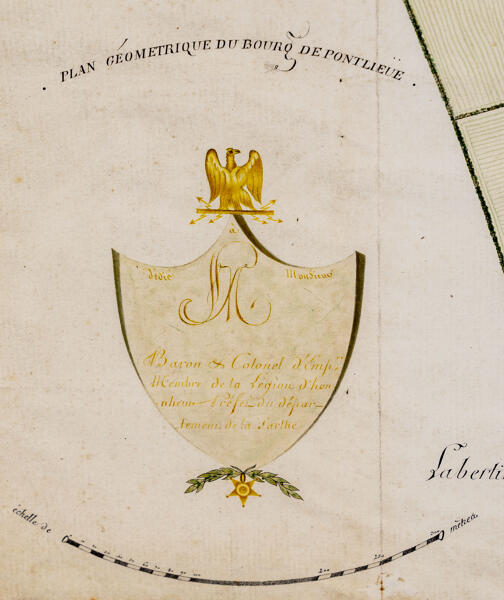 PLAN GÉOMETRIQUE DU BOURG DE PONTLIEÜE
à
dédié Monsieur
Baron & Colonel d'Emp.re
Membre de la Légion d'hon-
nheur Préfet du dépar-
tement de la Sarthe
Laberti
échelle de 200 250 300 mètres